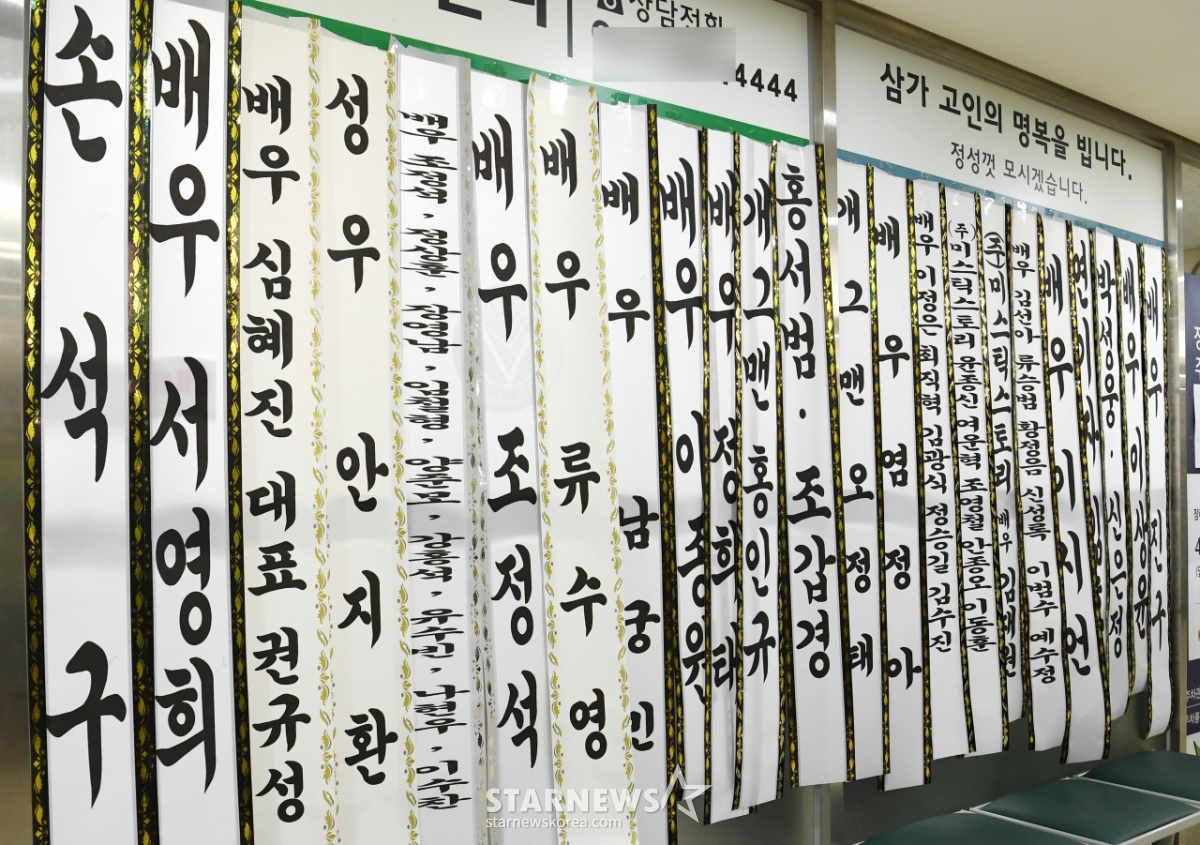 상담전화
4444
삼가 고인의 명복을 빕니다.
정성껏 모시겠습니다.
손석구
배우 서영희
배우 심혜진 대표 권규성
성우 안지환
배우 조정석
배우 류수영
배우 남궁민
배우 이종원
배우 정희태
개그맨 홍인규
홍서범 · 조갑경
개그맨 오정태
배우 염정아
배우 이정은 최직혁 김광식 정승길 김수진
(주)미스틱스토리 윤종신 여운혁 조영철 안종오 이동훈
(주)미스틱스토리 배우 김태원
배우 김선아 류승범 황정음 신성록 이범수 예수정
배우 이시언
박성웅 · 신은정
배우 이상윤
배우 진구
STARNEWS
starnewskorea.com